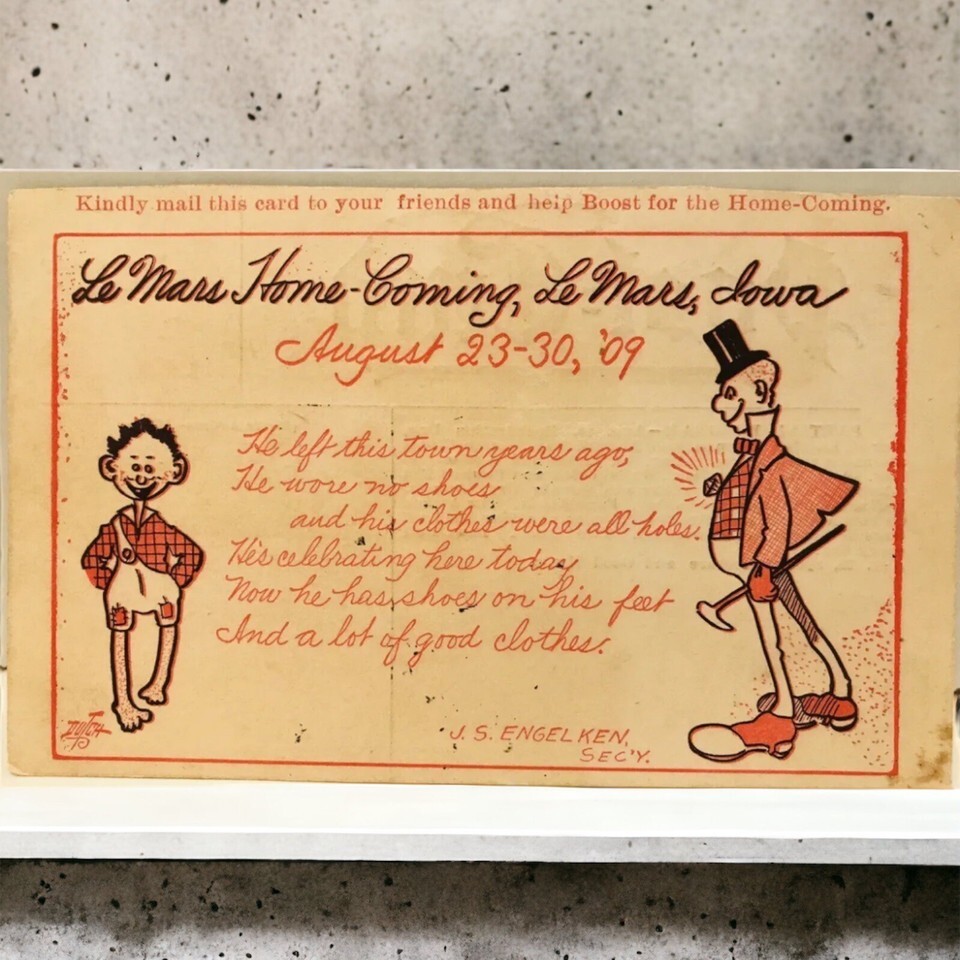 Kindly mail this card to your friends and help Boost for the Home-Coming.
Le Mars Home-Coming, Le Mars, Iowa
August 23-30, '09
He left this town years ago,
He wore no shoes
and his clothes were all holes.
He's celebrating here today
Now he has shoes on his feet
And a lot of good clothes.
DUTCH
J. S. ENGELKEN,
SEC'Y.